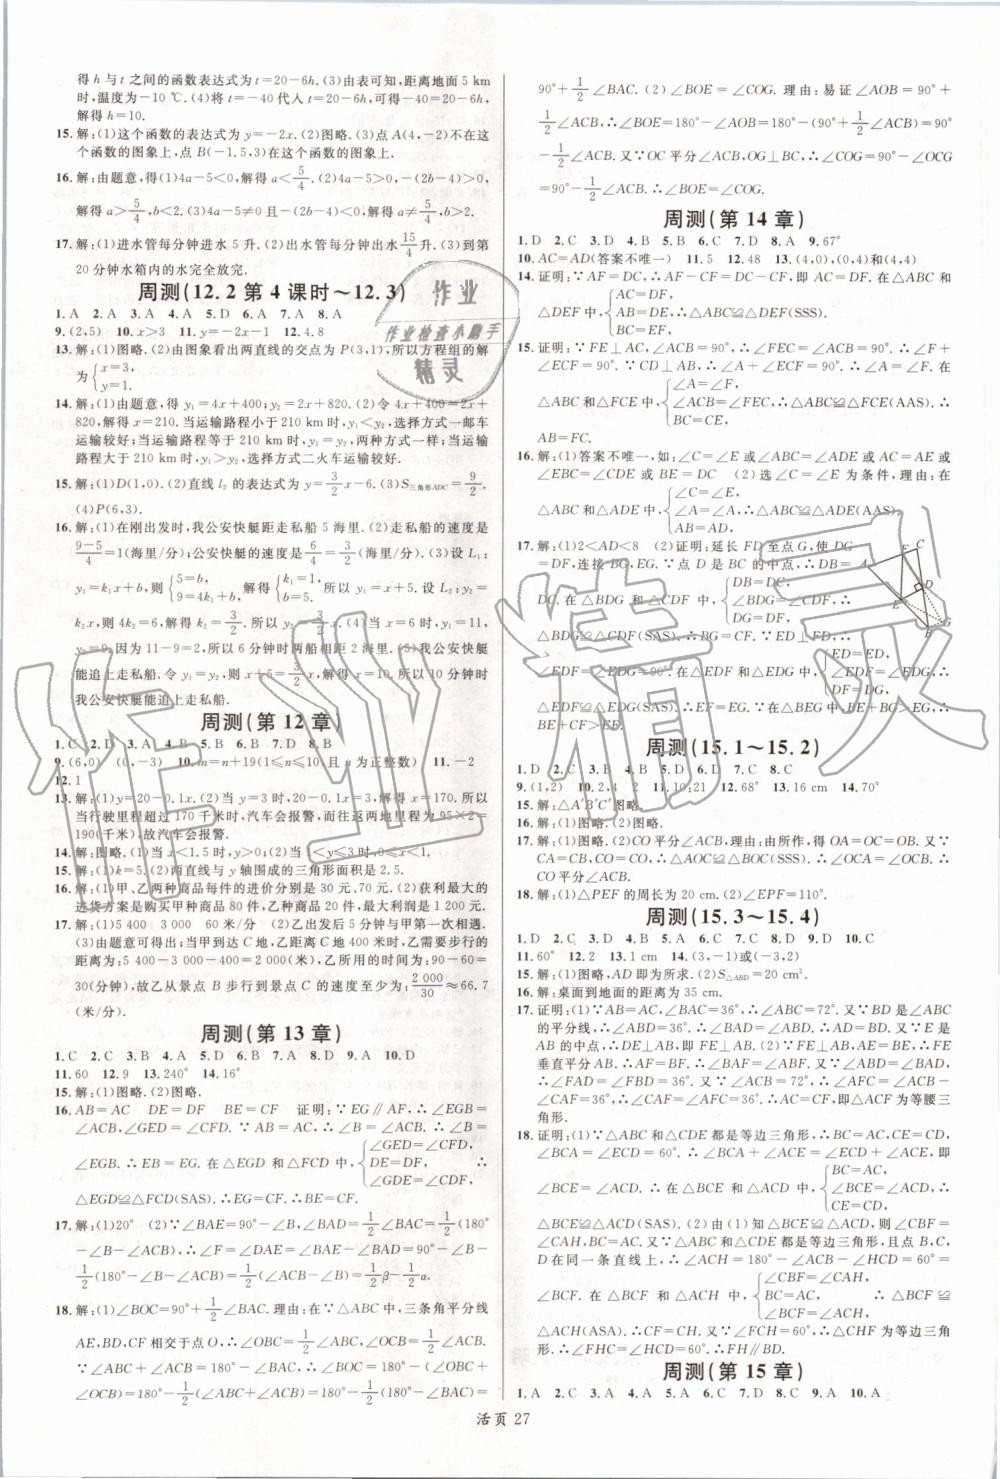 得h与t之间的函数表达式为t=20-6h.(3)由表可知,距离地面5 km
时,温度为-10 ℃.(4)将t=-40代入t=20-6h,可得-40=20-6h.
解得h=10.
15.解:(1)这个函数的表达式为y=-2x.(2)图略.(3)点A(4,-2)不在这
个函数的图象上,点B(-1.5,3)在这个函数的图象上.
16.解:由题意,得(1)4a-5<0.解得a<5/4.(2)4a-5>0且-(2b-4)>0.
解得a>5/4,b<2.(3)4a-5≠0且-(2b-4)<0.解得a≠5/4,b>2.
17.解:(1)进水管每分钟进水5升.(2)出水管每分钟出水15/4升.(3)到第
20分钟水箱内的水完全放完.
周测(12.2第4课时~12.3)
1.A 2.A 3.B 4.D 5.A 6.B 7.A 8.A
9.(2,5) 10.x>3 11.y=-2x-1 12.4.8
13.解:(1)图略.(2)由图象看出两直线的交点为P(3,1),所以方程组的解
为{x=3, y=1.
14.解:(1)由题意,得y₁=4x+400,y₂=2x+820.(2)令4x+400=2x+
820,解得x=210,所以当运输路程小于210 km时,y₁<y₂,选择方式一邮车
运输较好;当运输路程等于210 km时,y₁=y₂,两种方式一样;当运输
路程大于210 km时,y₁>y₂,选择方式二火车运输较好.
15.解:(1)D(1,0).(2)直线l₂的表达式为y=3/2x-6.(3)S三角形ADC=9/2.
(4)P(6,3).
16.解:(1)在刚出发时,我公安快艇距走私船5海里.(2)走私船的速度是
(9-5)/4=1(海里/分);公安快艇的速度是6/4=3/2(海里/分).(3)设L₁:
y₁=k₁x+b,则{5=b, 9=4k₁+b, 解得{k₁=1, b=5. 所以y₁=x+5.设L₂:y₂=
k₂x,则6=4k₂.解得k₂=3/2.所以y₂=3/2x.(4)当x=6时,y₁=11,
y₂=9.因为11-9=2,所以6分钟时两船相距2海里.(5)我公安快艇
能追上走私船.令y₁=y₂,则x+5=3/2x,解得x=10.所以10分钟时
我公安快艇能追上走私船.
周测(第12章)
1.C 2.D 3.A 4.B 5.B 6.B 7.D 8.B
9.(6,0) (0,-3) 10.m=n+19(1≤n≤10,且n为正整数) 11.-2
12.1
13.解:(1)y=20-0.1x.(2)当y=3时,20-0.1x=3,解得x=170.所以
当行驶里程超过170千米时,汽车会报警,而往返两地里程为95×2=
190(千米),故汽车会报警.
14.解:图略.(1)当x<1.5时,y>0.(2)当1<y≤3时,0≤x<1.
15.解:(1)k=5.(2)两直线与y轴围成的三角形面积是2.5.
16.解:(1)甲、乙两种商品每件的进价分别是30元、70元.(2)获利最大的
进货方案是购买甲种商品80件,乙种商品20件,最大利润是1 200元.
17.解:(1)5 400 3 000 60米/分 (2)乙出发后5分钟与甲第一次相遇.
(3)由题意可得出:当甲到达C地,乙距离C地400米时,乙需要步行的
距离为:5 400-3 000-400=2 000(米),乙所用的时间为:90-60=
30(分钟),故乙从景点B步行到景点C的速度至少为:2 000/30≈66.7
(米/分).
周测(第13章)
1.C 2.C 3.B 4.A 5.D 6.B 7.B 8.B 9.A 10.D
11.60 12.9 13.240° 14.16°
15.解:(1)图略.(2)图略.
16.AB=AC DE=DF BE=CF 证明:∵EG∥AF,∴∠EGB=
∠ACB,∠GED=∠CFD.∵AB=AC,∴∠B=∠ACB.∴∠B=
∠EGB.∴EB=EG.在△EGD和△FCD中,{∠GED=∠CFD, DE=DF, ∠EDG=∠FDC, ∴
△EGD≌△FCD(SAS).∴EG=CF.∴BE=CF.
17.解:(1)20° (2)∵∠BAE=90°-∠B,∠BAD=1/2∠BAC=1/2(180°
-∠B-∠ACB),∴∠F=∠DAE=∠BAE-∠BAD=90°-∠B-
1/2(180°-∠B-∠ACB)=1/2(∠ACB-∠B)=1/2β-1/2α.
18.解:(1)∠BOC=90°+1/2∠BAC.理由:在∵△ABC中,三条角平分线
AE,BD,CF相交于点O,∴∠OBC=1/2∠ABC,∠OCB=1/2∠ACB.
∵∠ABC+∠ACB=180°-∠BAC,∴∠BOC=180°-(∠OBC+
∠OCB)=180°-1/2(∠ABC+∠ACB)=180°-1/2(180°-∠BAC)=
90°+1/2∠BAC.(2)∠BOE=∠COG.理由:易证∠AOB=90°+
1/2∠ACB,∴∠BOE=180°-∠AOB=180°-(90°+1/2∠ACB)=90°
-1/2∠ACB.又∵OC平分∠ACB,OG⊥BC,∴∠COG=90°-∠OCG
=90°-1/2∠ACB.∴∠BOE=∠COG.
周测(第14章)
1.D 2.C 3.D 4.A 5.C 6.C 7.D 8.A 9.67°
10.AC=AD(答案不唯一) 11.5 12.48 13.(4,0),(0,4)和(4,4)
14.证明:∵AF=DC,∴AF-CF=DC-CF,即AC=DF.在△ABC和
△DEF中,{AC=DF, AB=DE, BC=EF, ∴△ABC≌△DEF(SSS).
15.证明:∵FE⊥AC,∠ACB=90°,∴∠FEC=∠ACB=90°.∴∠F+
∠ECF=90°.∵CD⊥AB,∴∠A+∠ECF=90°.∴∠A=∠F.在
△ABC和△FCE中,{∠A=∠F, ∠ACB=∠FEC, BC=CE, ∴△ABC≌△FCE(AAS).∴
AB=FC.
16.解:(1)答案不唯一,如:∠C=∠E或∠ABC=∠ADE或AC=AE或
∠EBC=∠CDE或BE=DC (2)选∠C=∠E作为条件,理由:在
△ABC和△ADE中,{∠C=∠E, ∠A=∠A, AB=AD, ∴△ABC≌△ADE(AAS).
17.解:(1)2<AD<8 (2)证明:延长FD至点G,使DG
=DF,连接BG,EG.∵点D是BC的中点,∴DB=
DC.在△BDG和△CDF中,{DB=DC, ∠BDG=∠CDF, DG=DF, ∴
△BDG≌△CDF(SAS).∴BG=CF.∵ED⊥FD,∴
∠EDF=∠EDG=90°.在△EDF和△EDG中,{ED=ED, ∠EDF=∠EDG, DF=DG, ∴
△EDF≌△EDG(SAS).∴EF=EG.∵在△BEG中,BE+BG>EG,
∴BE+CF>EF.
周测(15.1~15.2)
1.D 2.C 3.B 4.D 5.C 6.B 7.C 8.C
9.(1,2) 10.2,4 2 11.10;21 12.68° 13.16 cm 14.70°
15.解:△A'B'C'图略.
16.解:(1)图略.(2)图略.
17.解:(1)图略.(2)CO平分∠ACB,理由:由所作,得OA=OC=OB.又∵
CA=CB,CO=CO,∴△ACO≌△BCO(SSS).∴∠OCA=∠OCB.∴
CO平分∠ACB.
18.解:(1)△PEF的周长为20 cm.(2)∠EPF=110°.
周测(15.3~15.4)
1.D 2.C 3.B 4.B 5.A 6.B 7.C 8.D 9.D 10.C
11.60° 12.2 13.1 cm 14.(3,-1)或(-3,-2)
15.解:(1)图略,AD即为所求.(2)S△ABD=20 cm².
16.解:桌面到地面的距离为35 cm.
17.证明:(1)∵AB=AC,∠BAC=36°,∴∠ABC=72°.又∵BD是∠ABC
的平分线,∴∠ABD=36°.∴∠BAD=∠ABD.∴AD=BD.又∵E是
AB的中点,∴DE⊥AB,即FE⊥AB.(2)∵FE⊥AB,AE=BE,∴FE
垂直平分AB.∴AF=BF.∴∠BAF=∠ABF.又∵∠ABD=∠BAD,
∴∠FAD=∠FBD=36°.又∵∠ACB=72°,∴∠AFC=∠ACB-
∠CAF=36°,∴∠CAF=∠AFC=36°.∴AC=CF,即△ACF为等腰三
角形.
18.证明:(1)∵△ABC和△CDE都是等边三角形,∴BC=AC,CE=CD,
∠BCA=∠ECD=60°.∴∠BCA+∠ACE=∠ECD+∠ACE,即
∠BCE=∠ACD.∴在△BCE和△ACD中,{BC=AC, ∠BCE=∠ACD, CE=CD, ∴
△BCE≌△ACD(SAS).(2)由(1)知△BCE≌△ACD,则∠CBF=
∠CAH,BC=AC.又∵△CDE为等边三角形,且点B,C,
D在同一条直线上,∴∠ACH=180°-∠ACB-∠HCD=60°=
∠BCF.在△BCF和△ACH中,{∠CBF=∠CAH, BC=AC, ∠BCF=∠ACH, ∴△BCF≌
△ACH(ASA).∴CF=CH.∵∠FCH=60°,∴△CHF为等边三角
形.∴∠FHC=∠HCD=60°.∴FH∥BD.
周测(第15章)
1.A 2.C 3.A 4.A 5.C 6.C 7.D 8.D 9.A 10.A
活页 27
作业
作业检查小助手
精灵
作业精灵